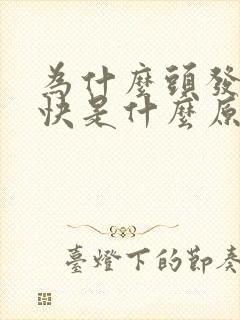 為什麼頭發
快是什麼原
臺燈下的節奏